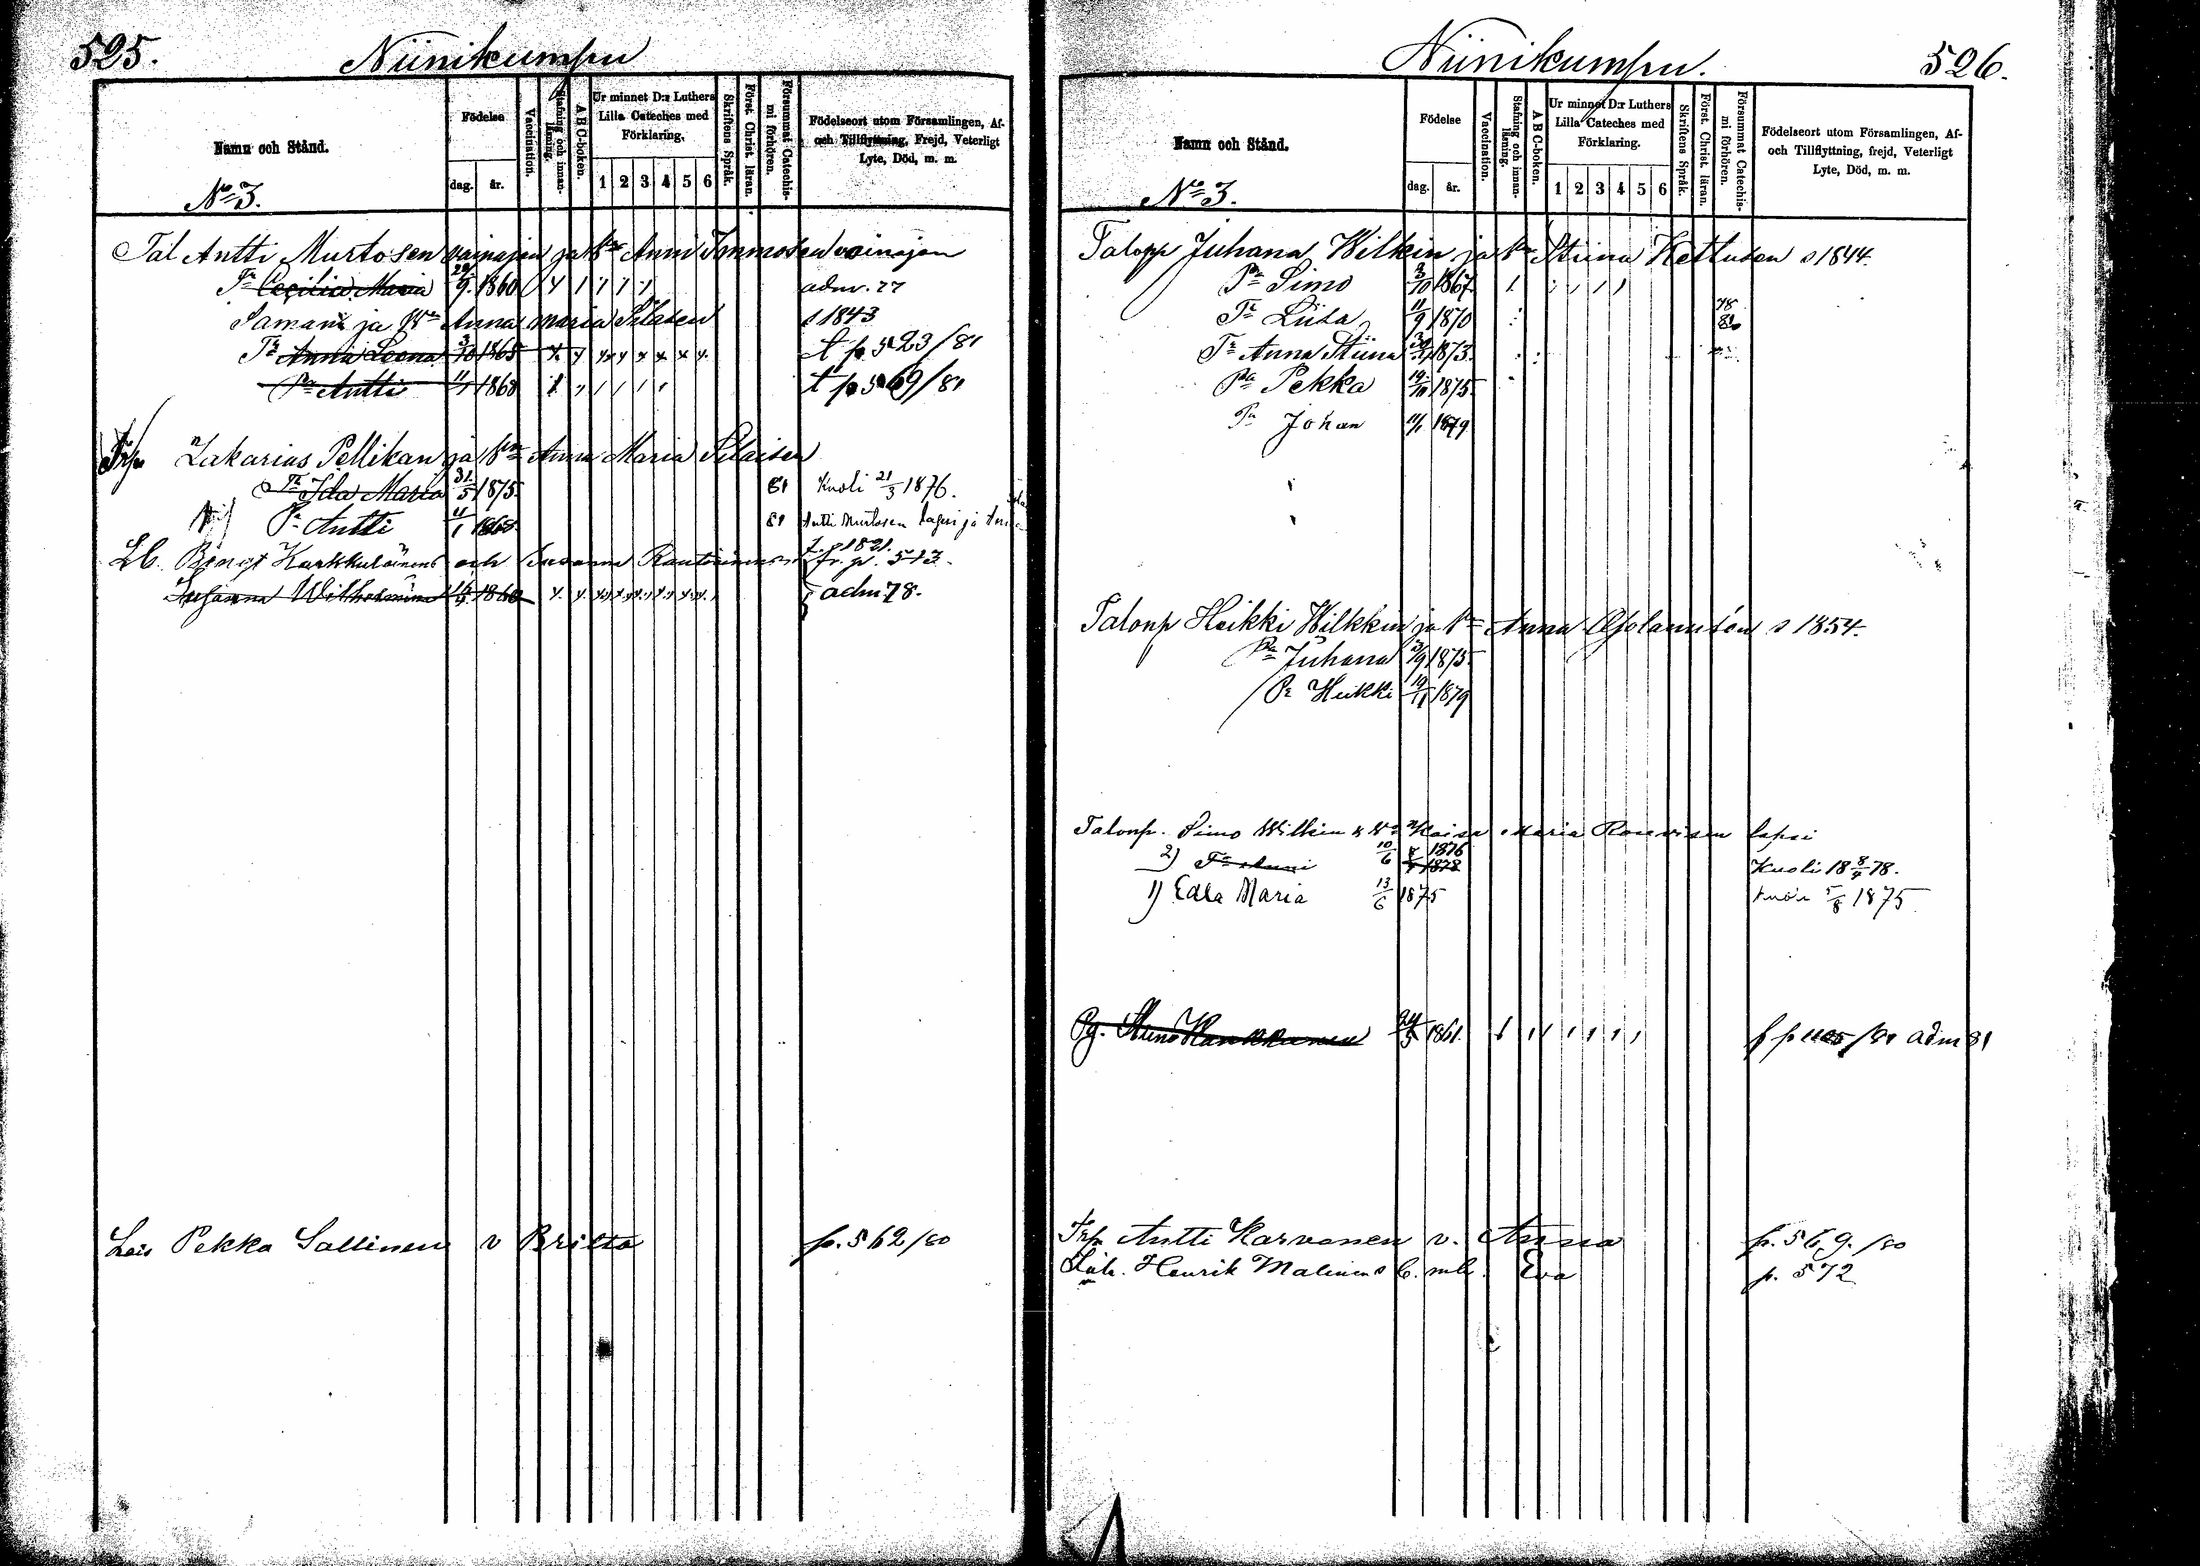 525.
Niinikumpu
Namn och Stånd.
Födelse
dag.
år.
Vaccination.
Stafning och innan-läsning.
A B C-boken.
Ur minnet D:r Luthers Lilla Cateches med Förklaring.
1 2 3 4 5 6
Skriftens Språk.
Först. Christ. läran.
Försummat Catechis-mi förhören.
Födelseort utom Församlingen, Af- och Tillflyttning, Frejd, Veterligt Lyte, Död, m. m.
No 3.
Tal Antti Murtosen vainajan ja Vmo Anni Immosen vainajan
Tr Cecilia Maria 29/9 1860 adm. 77
Saman ja Vmo Anna Maria Silasen s 1843
Tr Anna Leena 3/10 1865 t p 523/81
Pa Antti 11/1 1868 t p 569/81
Zakarias Pellikan ja Vmo Anna Maria Silaisen
Tr Ida Maria 31/5 1875 81 Kuoli 21/3 1876.
Pa Antti 11/1 1868 81 Antti Murtosen lapsi ja
Lb. Bengt Karkkulainens och Susanna
fr. p. 513.
Susanna Wilhelmina 1860 adm. 78.
Lois Pekka Sallinen v Britta p. 562/80
526.
Niinikumpu.
Namn och Stånd.
Födelse
dag.
år.
Vaccination.
Stafning och innan-läsning.
A B C-boken.
Ur minnet D:r Luthers Lilla Cateches med Förklaring.
1 2 3 4 5 6
Skriftens Språk.
Först. Christ. läran.
Försummat Catechis-mi förhören.
Födelseort utom Församlingen, Af- och Tillflyttning, frejd, Veterligt Lyte, Död, m. m.
No 3.
Talonp Juhana Wilkin ja Vmo Stiina Kettusen s 1844.
Pa Simo 1867
Tr Liisa 11/9 1870 78
Tr Anna Stiina 1873.
Pa Pekka 19/10 1875
Pa Johan 11/1 1879
Talonp Heikki Wilkkin ja Vmo Anna s 1854.
Pa Juhana 1875
Pa Heikki 19/11 1879
Talonp. Simo Wilkin & Vmo Kaisa Maria lapsi
2) Tr Anni 10/6 1876 Kuoli 18 8/4 78.
1) Edla Maria 13/6 1875 kuoli 5/8 1875
Pg. 24/5 1861. adm 81
Trp Antti Karvonen v. Anna p. 569./80
Henrik Malinens Eva p. 572